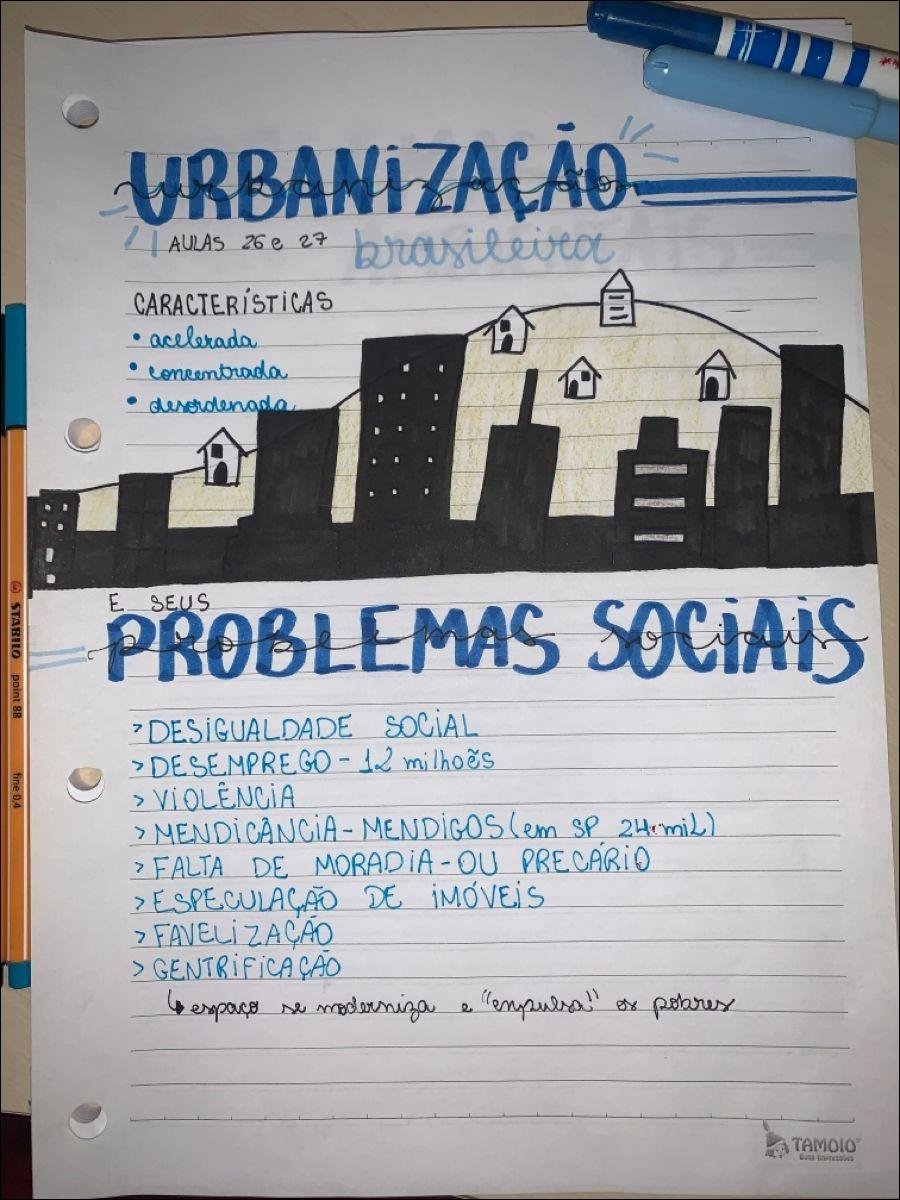 URBANiZAÇÃO
urbanização
AULAS 26 e 27
brasileira
CARACTERÍSTICAS
• acelerada
• concentrada
• desordenada
E SEUS
PROBLEMAS SOCiAiS
problemas sociais
> DESiGUALDADE SOCiAL
> DESEMPREGO - 12 milhoẽs
> ViOLÊNCiA
> MENDiCÂNCiA - MENDiGOS (em SP 24 miL)
> FALTA DE MORADiA - OU PRECÁRiO
> ESPECULAÇÃO DE iMÓVEiS
> FAVELiZAÇÃO
> GENTRiFiCAÇÃO
↳ espaço se moderniza e "expulsa" os pobres
STABILO point 88 fine 0,4
TAMOIO